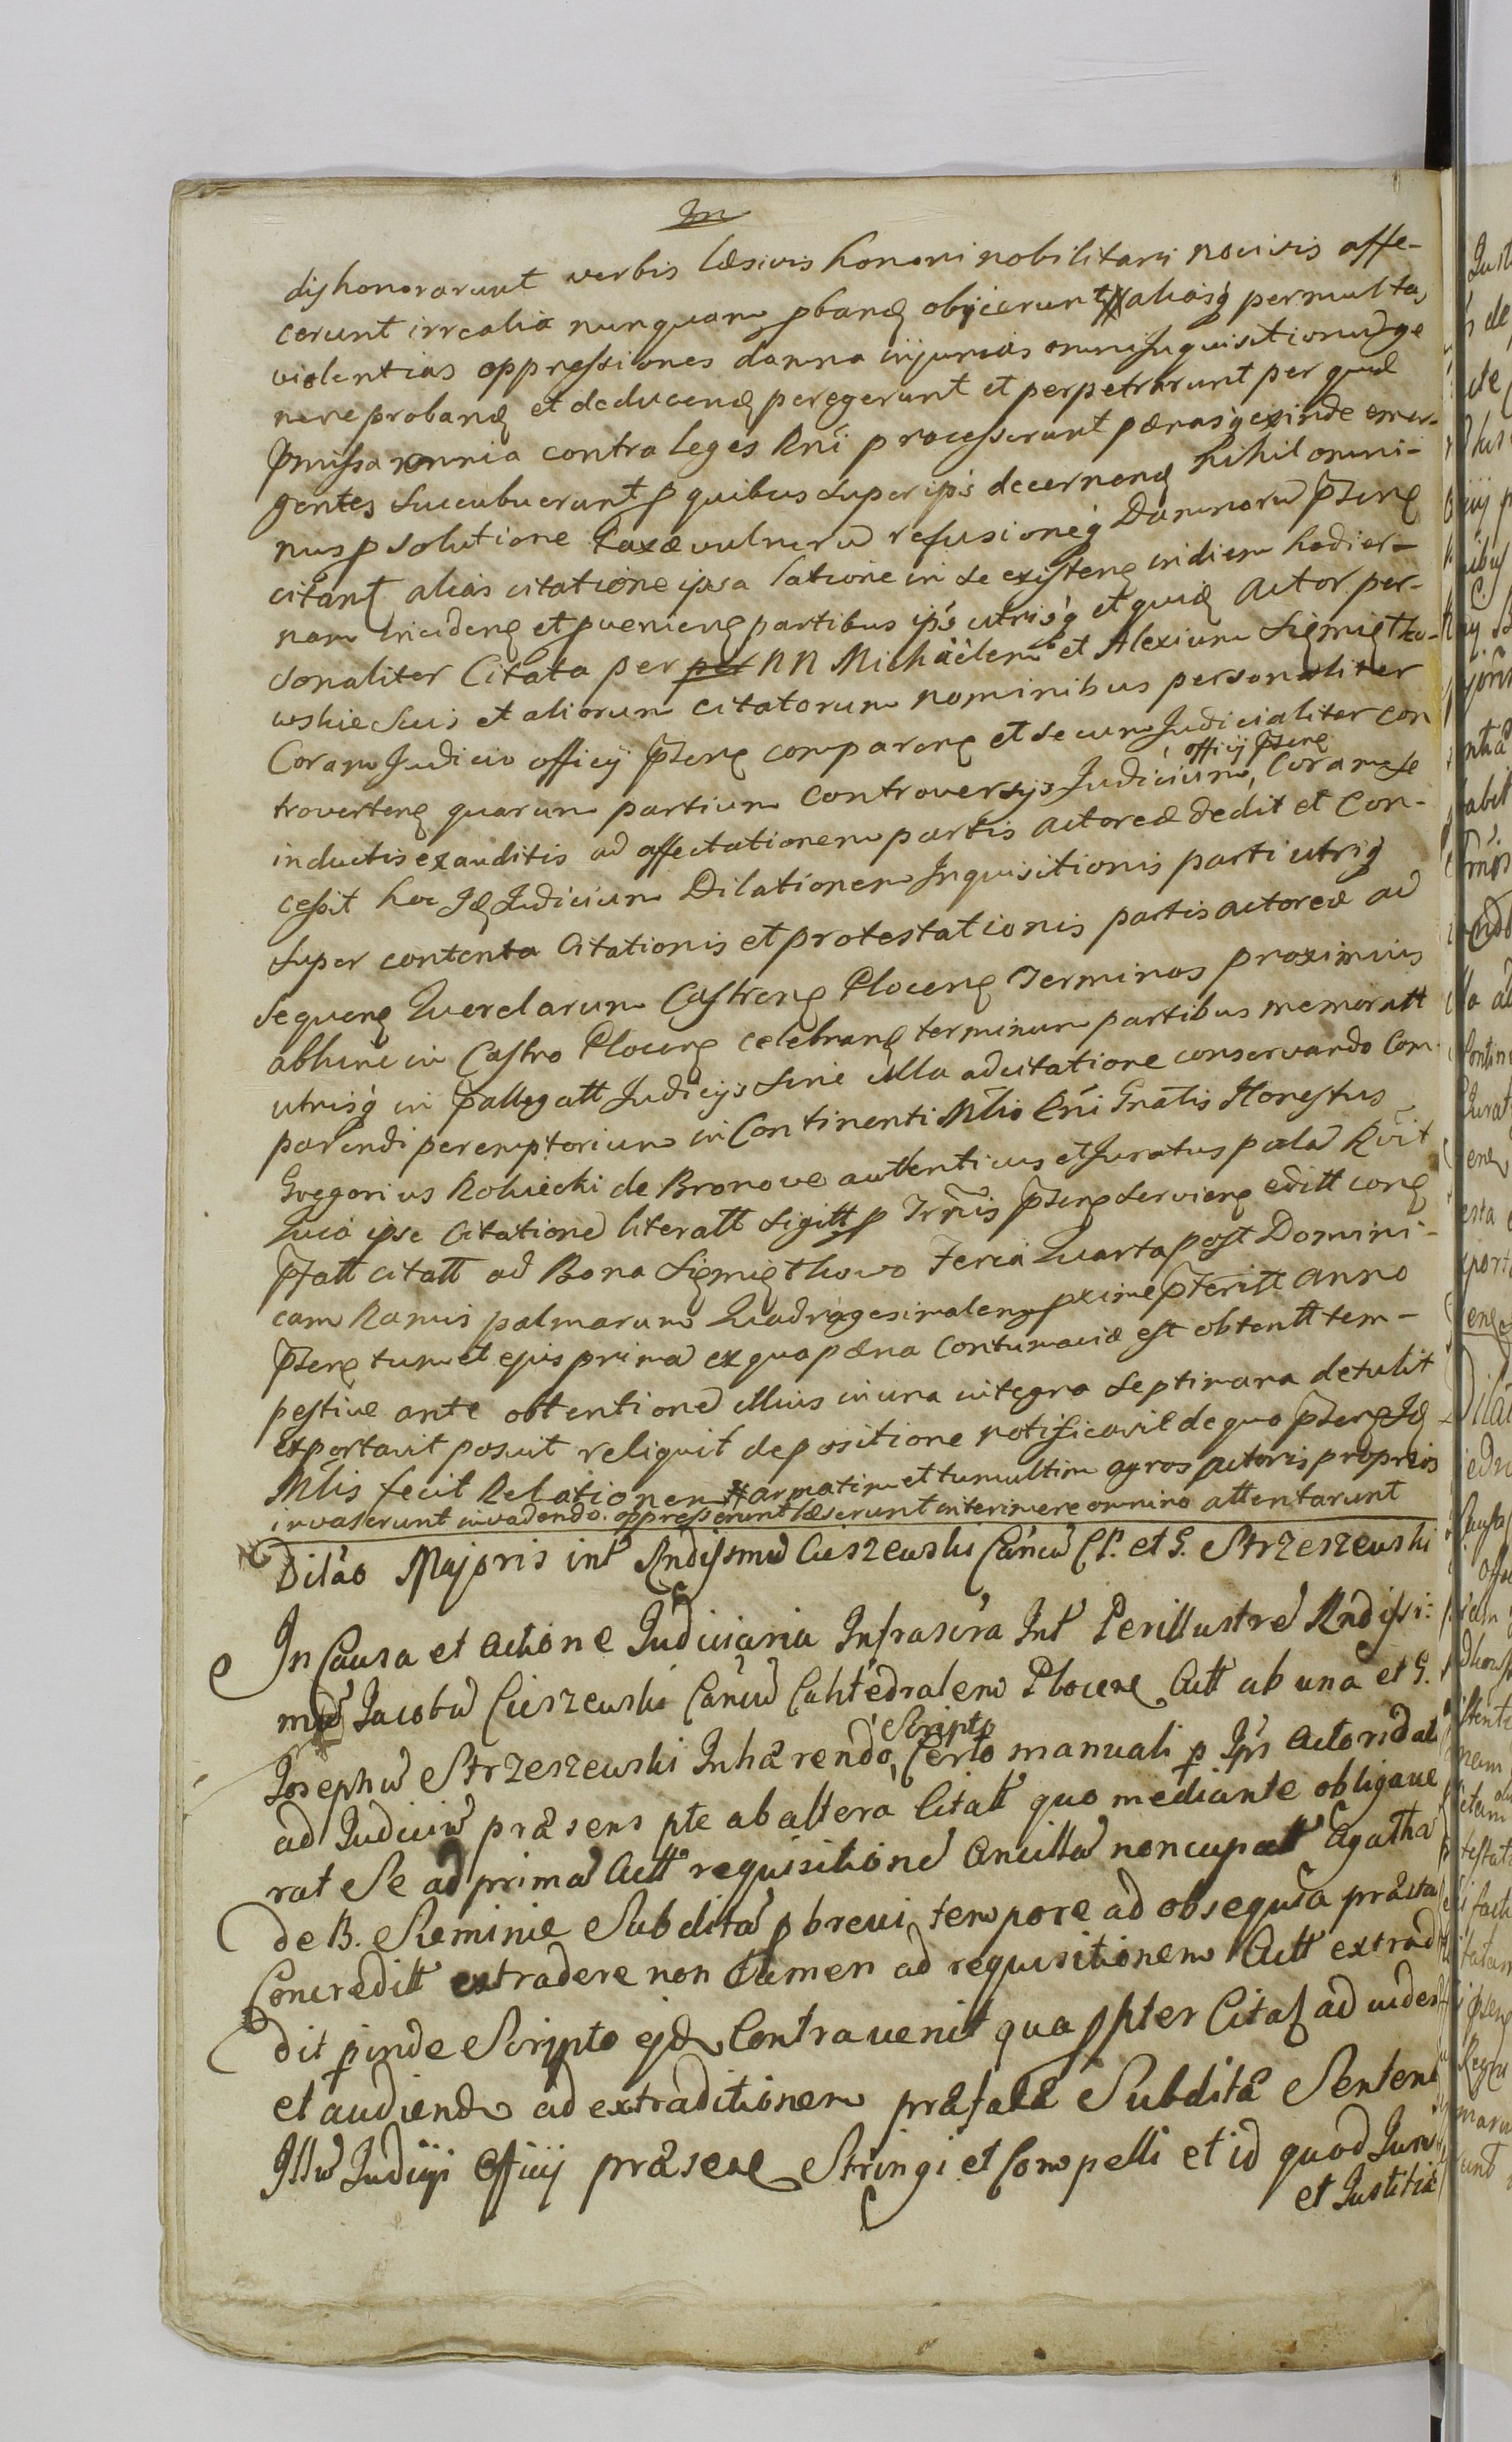 In
dishonorarunt verbis læsivis honori nobilitari nocivis affe-
cerunt irrealia nunquam pband obijcerunt # aliasq permultas
violentias oppressiones damna injurias omnis Inquisitionu ge
nere proband et deducend peregerunt et perpetrarunt per quæ
pmissa omnia contra leges Rni processerunt pænasq exinde emer-
gentes succubuerunt p quibus super ips decernend nihil omni-
nus p solutione taxæ vulneru refusioneq Damnoru pseng
citant alias citatione ipsa latione in se existeng in diem hodier-
nam incideng et pveniens partibus ips utrisq et quid Actor per-
sonaliter Citata per per NN Michäelem et Alexium Siemiętko-
wskie suis et aliorum citatorum nominibus personaliter
Coram Judicio officij pseng compareng et secum Judicialiter con
troverteng quarum partium controversijs Judicium, officij pseng Coram se
inductis exauditis ad affectationem partis actoreæ dedit et con-
cessit hoc Id Judicium Dilationem Inquisitionis parti utriq
super contenta Citationis et protestationis partis actoreæ ad
sequeng Querelarum Castreng Ploceng Terminos proximius
abhinc in Castro Ploceng celebrand terminum partibus memoratt
utrisq in pallegatt Judicijs sine ulla adcitatione conservando com-
parendi peremptorium in Continenti Mlio Rni Gnalis Honestus
Gregorius Rokicki de Bronove authenticus et Juratus pala Rvit
Quia ipse Citatione literatt sigitt p Trnis pseng servieng editt cong
pfatt citatt ad Bona Siemiętkowo Feria Quarta post Domini-
cam Ramis palmarum Quadragesimalem pxime pteritt anno
pseng tum et ejus prima ex qua pæna Contumaciæ est obtentt tem-
pestive ante obtentione illius in una integra septimana detulit
exportavit posuit reliquit depositione notificavit de quo pseng Id
Mlis fecit Relationem # armatim et tumultim agros actoris proprios
invaserunt invadendo oppresserunt læserunt interimere omnino attentarunt
Dilao Majoris int Rndissmu Cieszewski Cancu CP. et G. Strzeszewski
In Causa et actione Judiciaria Infrascra Int Perillustre Rndissi:
mu Jacobu Cieszewski Cancu Cahtedralem Plocene Actt ab una et G.
Josephu Strzeszewski Inhærendo, Scripto Certo manuali p Ips actorid dat
ad Judiciu præsens pte ab altera Citatt quo mediante obligave
rat Se ad prima Actt requisitione Ancilla noncupatt Agatha
de B. Sieminie Subdita p brevi tempore ad obsequia præsta
Concreditt extradere non tamen ad requisitionem Actt extrad
dit pinde Scripto ejd Contravenit qua ppter Citat ad viden
et audiend ad extraditionem præfatæ Subditæ Senten
Illu Judicij officij præsene Stringi et Compelli et id quod Juris
et Justitiæ